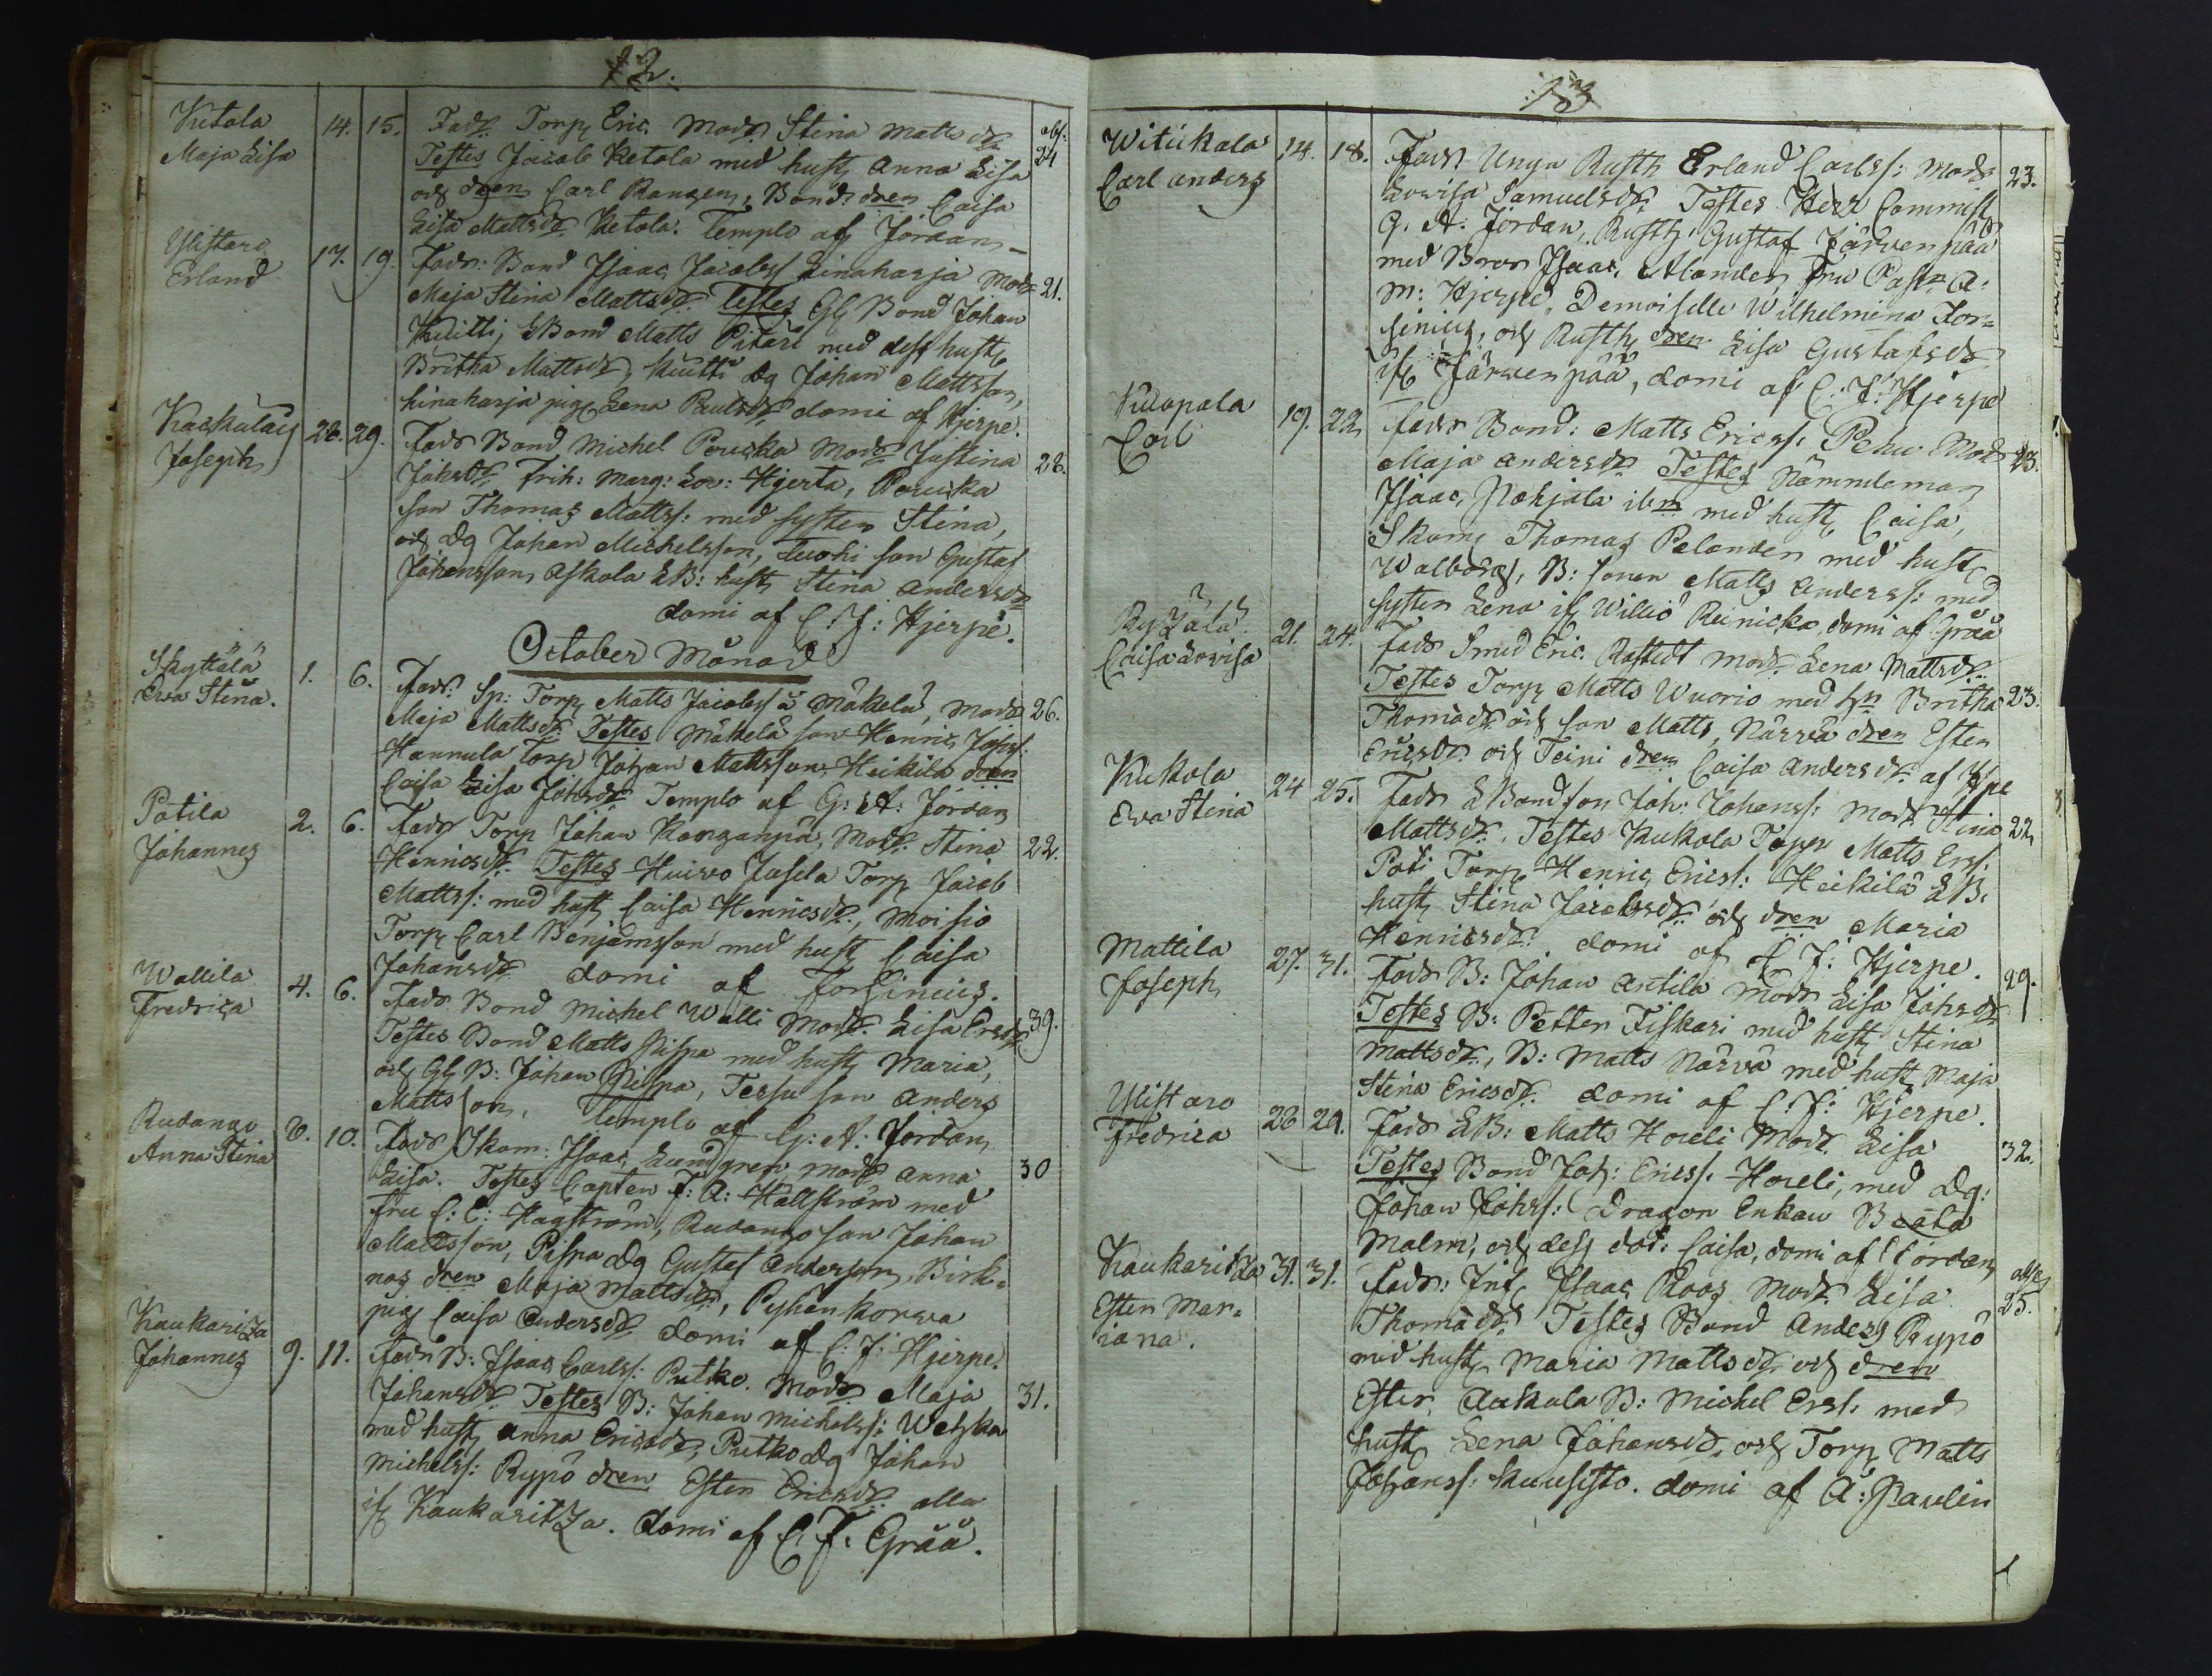 12.
Ketola 14. 15. Fadr Torp Eric, Modr Stina Mattsdr abs:
Maja Lisa Testes Jacob Ketola med hust Anna Lisa 24
och dren Carl Rangen, Bond: dren Caisa
Lisa Mattsdr Ketola. Templo af Jordan
Ylistaro 17. 19. Fadr: Bond Isaac Jacobss Linaharja Modr 21.
Erland Maja Stina Mattsdr Testes Gl Bond Johan
Kuitti, LBond Matts Pitäri med dess hust
Britha Mattsdr, Kuitti dg Johan Mattsson,
Linaharja pig Lena Paulsdr domi af Hjerpe.
28. 29. Fadr Bond Michel Perucka Modr Justina 28.
Joseph Johsdr Frih: Marg: Lov: Hjerta, Perucka
son Thomas Mattss: med systen Stina,
och dg Johan Michelsson, son Gustaf
Johansson, Askola LB: hust Stina Andersdr
domi af C: J: Hjerpe.
October Månad
Skyttälä 1. 6. Fadr: Sp: Torp Matts Jacobss ä Mäkelä, Modr 26.
Eva Stina. Maja Mattsdr Testes Mäkelä son Henric Johss:
Hannula Torp Johan Mattsson, Heikilä dren
Caisa Lisa Johsdr Templo af G: A: Jordan
Potila 2. 6. Fadr Torp Johan Kanganpä, Modr: Stina 22.
Johannes Henricsdr Testes Huivo Jusela Torp Jacob
Mattss: med hust Caisa Henricsdr, Moisio
Torp Carl Benjamsson med hust Caisa
Johansdr domi af Forsinius.
Wallila 4. 6. Fadr Bond Michel Walli Modr Lisa Ersdr 39.
Fredrica Testes Bond Matts Pispa med hust Maria,
och Gl B: Johan Pispa, Tersu son Anders
Mattsson, Templo af G: A: Jordan
Rudango 6. 10. Fadr Skom: Isaac Lundgren Modr Anna 30
Anna Stina Lisa. Testes Capten F: A: Hällström med
Fru C: C: Hagström, Rudango son Johan
Mattsson, Pispa dg Gustaf Anderson, Birk-
nas dren Maja Mattsdr, Pyhänkorva
pig Caisa Andersdr domi af C: J: Hjerpe.
Kaukaritza 9. 11. Fadr B: Isaac Carlss: Putko. Modr Maja 31.
Johannes Johansdr Testes B: Johan Michelss: Wetzka
med hust Anna Ericsdr, Putko dg Johan
Michelss: Rypö dren Esten Ericsdr alla
if Kaukaritza. domi af C: F: Gråå.
13
Witickala 14. 18. Fadr Unga Rusth Erland Carlss: Modr 23.
Carl Anders Lovisa Samuelsdr Testes Herr Commiss
G. A. Jordan, Rusth: Gustaf Järvenpää
med Bror Isaac, Alander, Fru Past: A:
M: Hjerpe, Demoiselle Wilhelmina For-
sinius, och Rusth dren Lisa Gustafsdr
if Järvenpää, domi af C: J: Hjerpe
Kuopala 19. 22. Fadr Bond: Matts Ericss: Pehu. Modr 23.
Carl Maja Andersdr Testes Nämndeman
Isaac Nohjala ibm med hust Caisa,
Skom: Thomas Pelander med hust
Walborg, B: sonen Matts Anderss: med
systen Lena if Willio Reinicka, domi af Gråå
21. 24. Fadr Smed Eric Rostedt Modr Lena Mattsdr
Caisa Lovisa Testes Torp Matts Wuorio med hn Britha 23.
Thomädr och son Matts, Närvä dren Esten
Ericsdr och Teini dren Caisa Andersdr af Hpe
Kukola 24 25. Fadr LBondson Joh: Johanss: Modr Stina 22
Eva Stina Mattsdr. Testes Kukola Torper Matts Erss:
Poti Torp Henric Ericss: Heikilä LB.
hust Stina Jacobsdr och dren Maria
Henricsdr domi af C. J: Hjerpe.
Mattila 27. 31. Fadr B: Johan Antila Modr Lisa Johsdr 29.
Joseph Testes B: Petter Fiskari med hust Stina
Mattsdr, B: Matts Närvä med hust Maja
Stina Ericsdr domi af C: J: Hjerpe.
Ylistaro 28 29. Fadr LB: Matts Horeli Modr. Lisa 32.
Fredrica Testes Bond Joh: Ericss. Horeli, med dg:
Johan Johss: Dragon Enkan Beata
Malm, och dess dot: Caisa, domi af Jordan
Kaukaritza 31. 31. Fadr: Inh Isaac Roos Modr Lisa
Esten Mar- Thomädr Testes Bond Anders Rypö 25.
iana. med hust Maria Mattsdr och dren
Ester, Aukula B: Michel Erss: med
hust Lena Johansdr, och Torp Matts
Johanss: Kuusisto. domi af A: Paulin